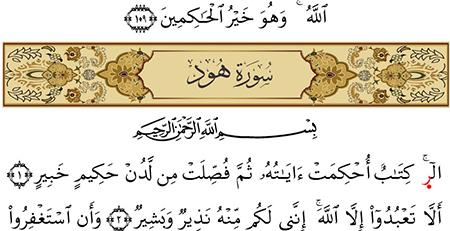 ٱللَّهُ ۚ وَهُوَ خَيْرُ ٱلْحَـٰكِمِينَ ﴿١٠٩﴾
سُورَةُ هُودٍ
بِسْمِ ٱللَّهِ ٱلرَّحْمَـٰنِ ٱلرَّحِيمِ
الٓر ۚ كِتَـٰبٌ أُحْكِمَتْ ءَايَـٰتُهُۥ ثُمَّ فُصِّلَتْ مِن لَّدُنْ حَكِيمٍ خَبِيرٍ ﴿١﴾
أَلَّا تَعْبُدُوٓا۟ إِلَّا ٱللَّهَ ۚ إِنَّنِى لَكُم مِّنْهُ نَذِيرٌ وَبَشِيرٌ ﴿٢﴾ وَأَنِ ٱسْتَغْفِرُوا۟